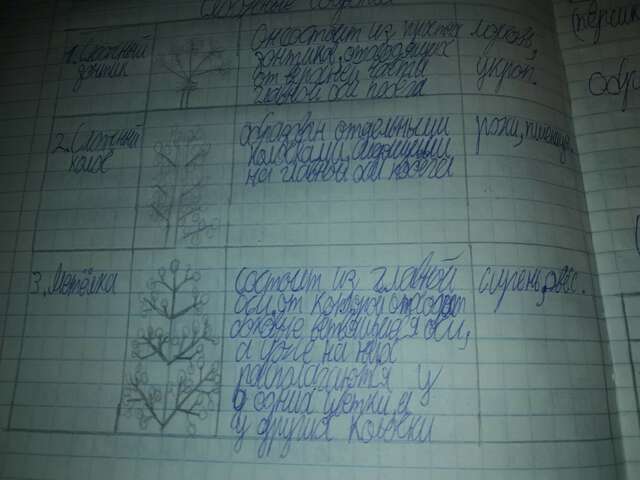 Сложные соцветия
1. Сложный
зонтик
Он состоит из пучка
зонтика, отходящих
от верхней части
главной оси побега
морковь,
укроп.
2. Сложный
колос
образован отдельными
колосками, сидящими
на главной оси побега
рожь, пшеница.
3. Метёлка
состоит из главной
оси, от которой отходят
боковые
а уже на них
располагаются у
одних цветки, а
у других колоски
сирень, овёс.